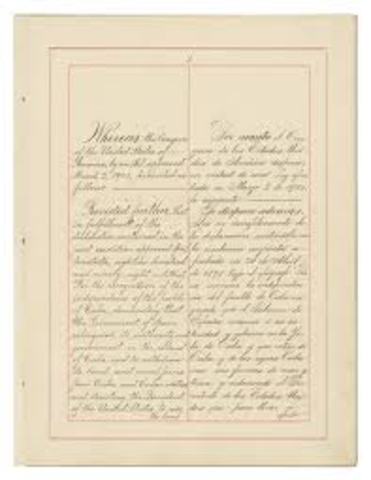 Whereas the Congress
of the United States of
America, by an Act approved
March 2, 1901, provided as
follows:
Provided further, That
in fulfillment of the
declaration contained in the
joint resolution approved April
twentieth, eighteen hundred
and ninety-eight, entitled,
"For the recognition of the
independence of the people
of Cuba, demanding that
the Government of Spain
relinquish its authority and
government in the island
of Cuba, and to withdraw
its land and naval forces
from Cuba and Cuban waters,
and directing the President
of the United States to use
the land
Por cuanto el Con-
greso de los Estados Uni-
dos de América dispuso,
en virtud de una Ley apro-
bada en Marzo 2 de 1901,
lo siguiente:
Se dispone además,
Que en cumplimiento de
la declaración contenida en
la resolución conjunta a-
probada en 20 de Abril
de 1898
de Cuba
Gobierno de
España
la Is-
la de Cuba, y que retire de
Cuba y de las aguas Cuba-
nas sus fuerzas de mar y
tierra, y ordenando al Pre-
sidente de los Estados Uni-
dos que